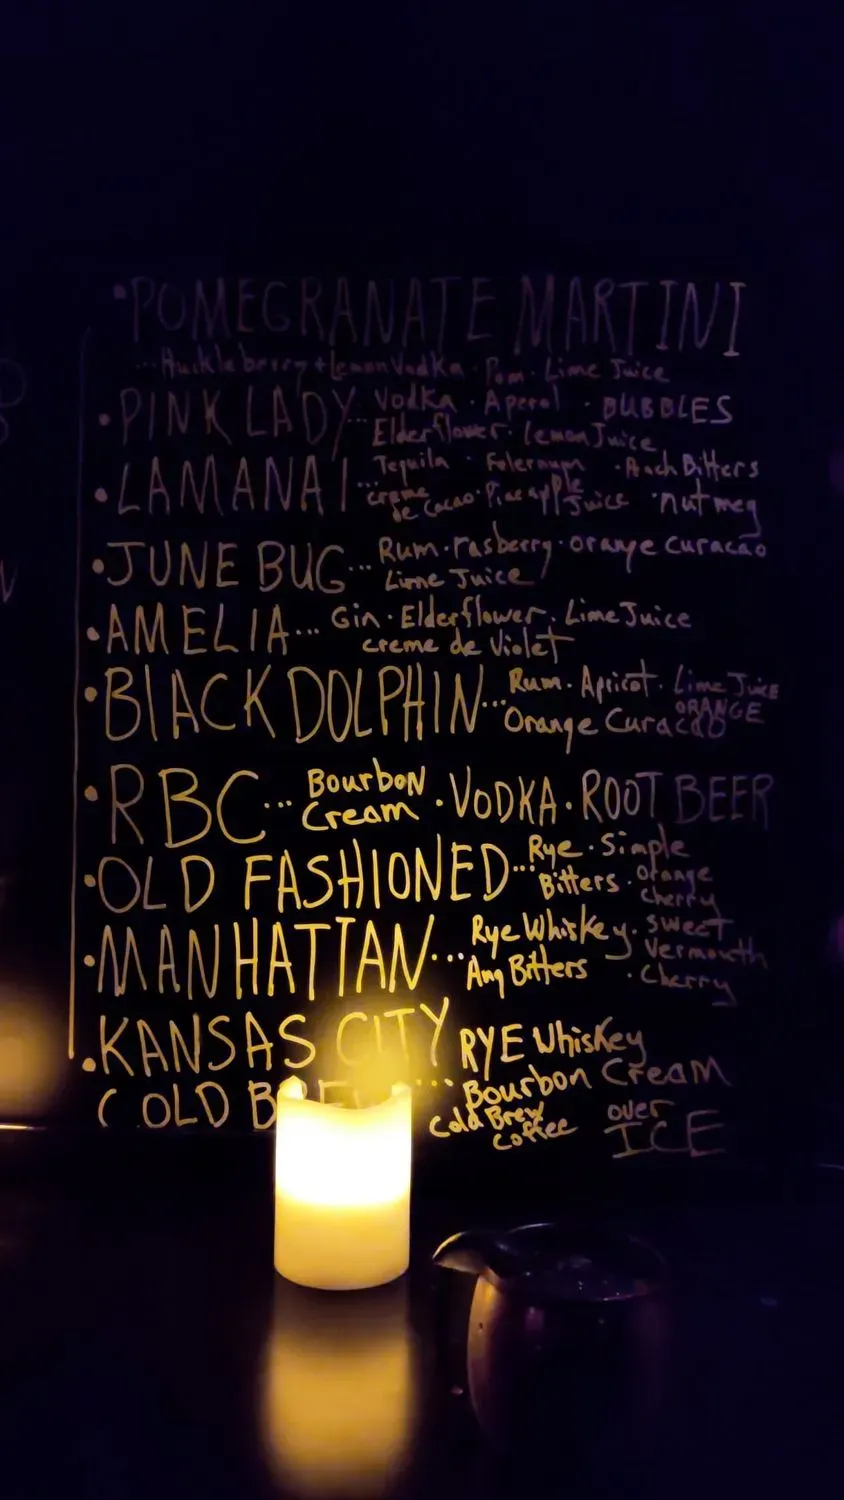 • POMEGRANATE MARTINI
... Huckleberry + Lemon Vodka · Pom · Lime Juice
• PINK LADY... Vodka · Aperol · BUBBLES
Elderflower · Lemon Juice
• LAMANAI... Tequila · Falernum · Peach Bitters
creme de Cacao · Pineapple Juice · nutmeg
• JUNE BUG... Rum · rasberry · orange curacao
Lime Juice
• AMELIA... Gin · Elderflower · Lime Juice
creme de Violet
• BLACK DOLPHIN... Rum · Apricot · Lime Juice
Orange Curacao ORANGE
• RBC... Bourbon Cream · VODKA · ROOT BEER
• OLD FASHIONED... Rye · Simple
Bitters · orange cherry
• MANHATTAN... Rye Whiskey · sweet Vermouth
Ang Bitters · Cherry
• KANSAS CITY RYE Whiskey
COLD ... Bourbon Cream
Cold Brew Coffee over ICE